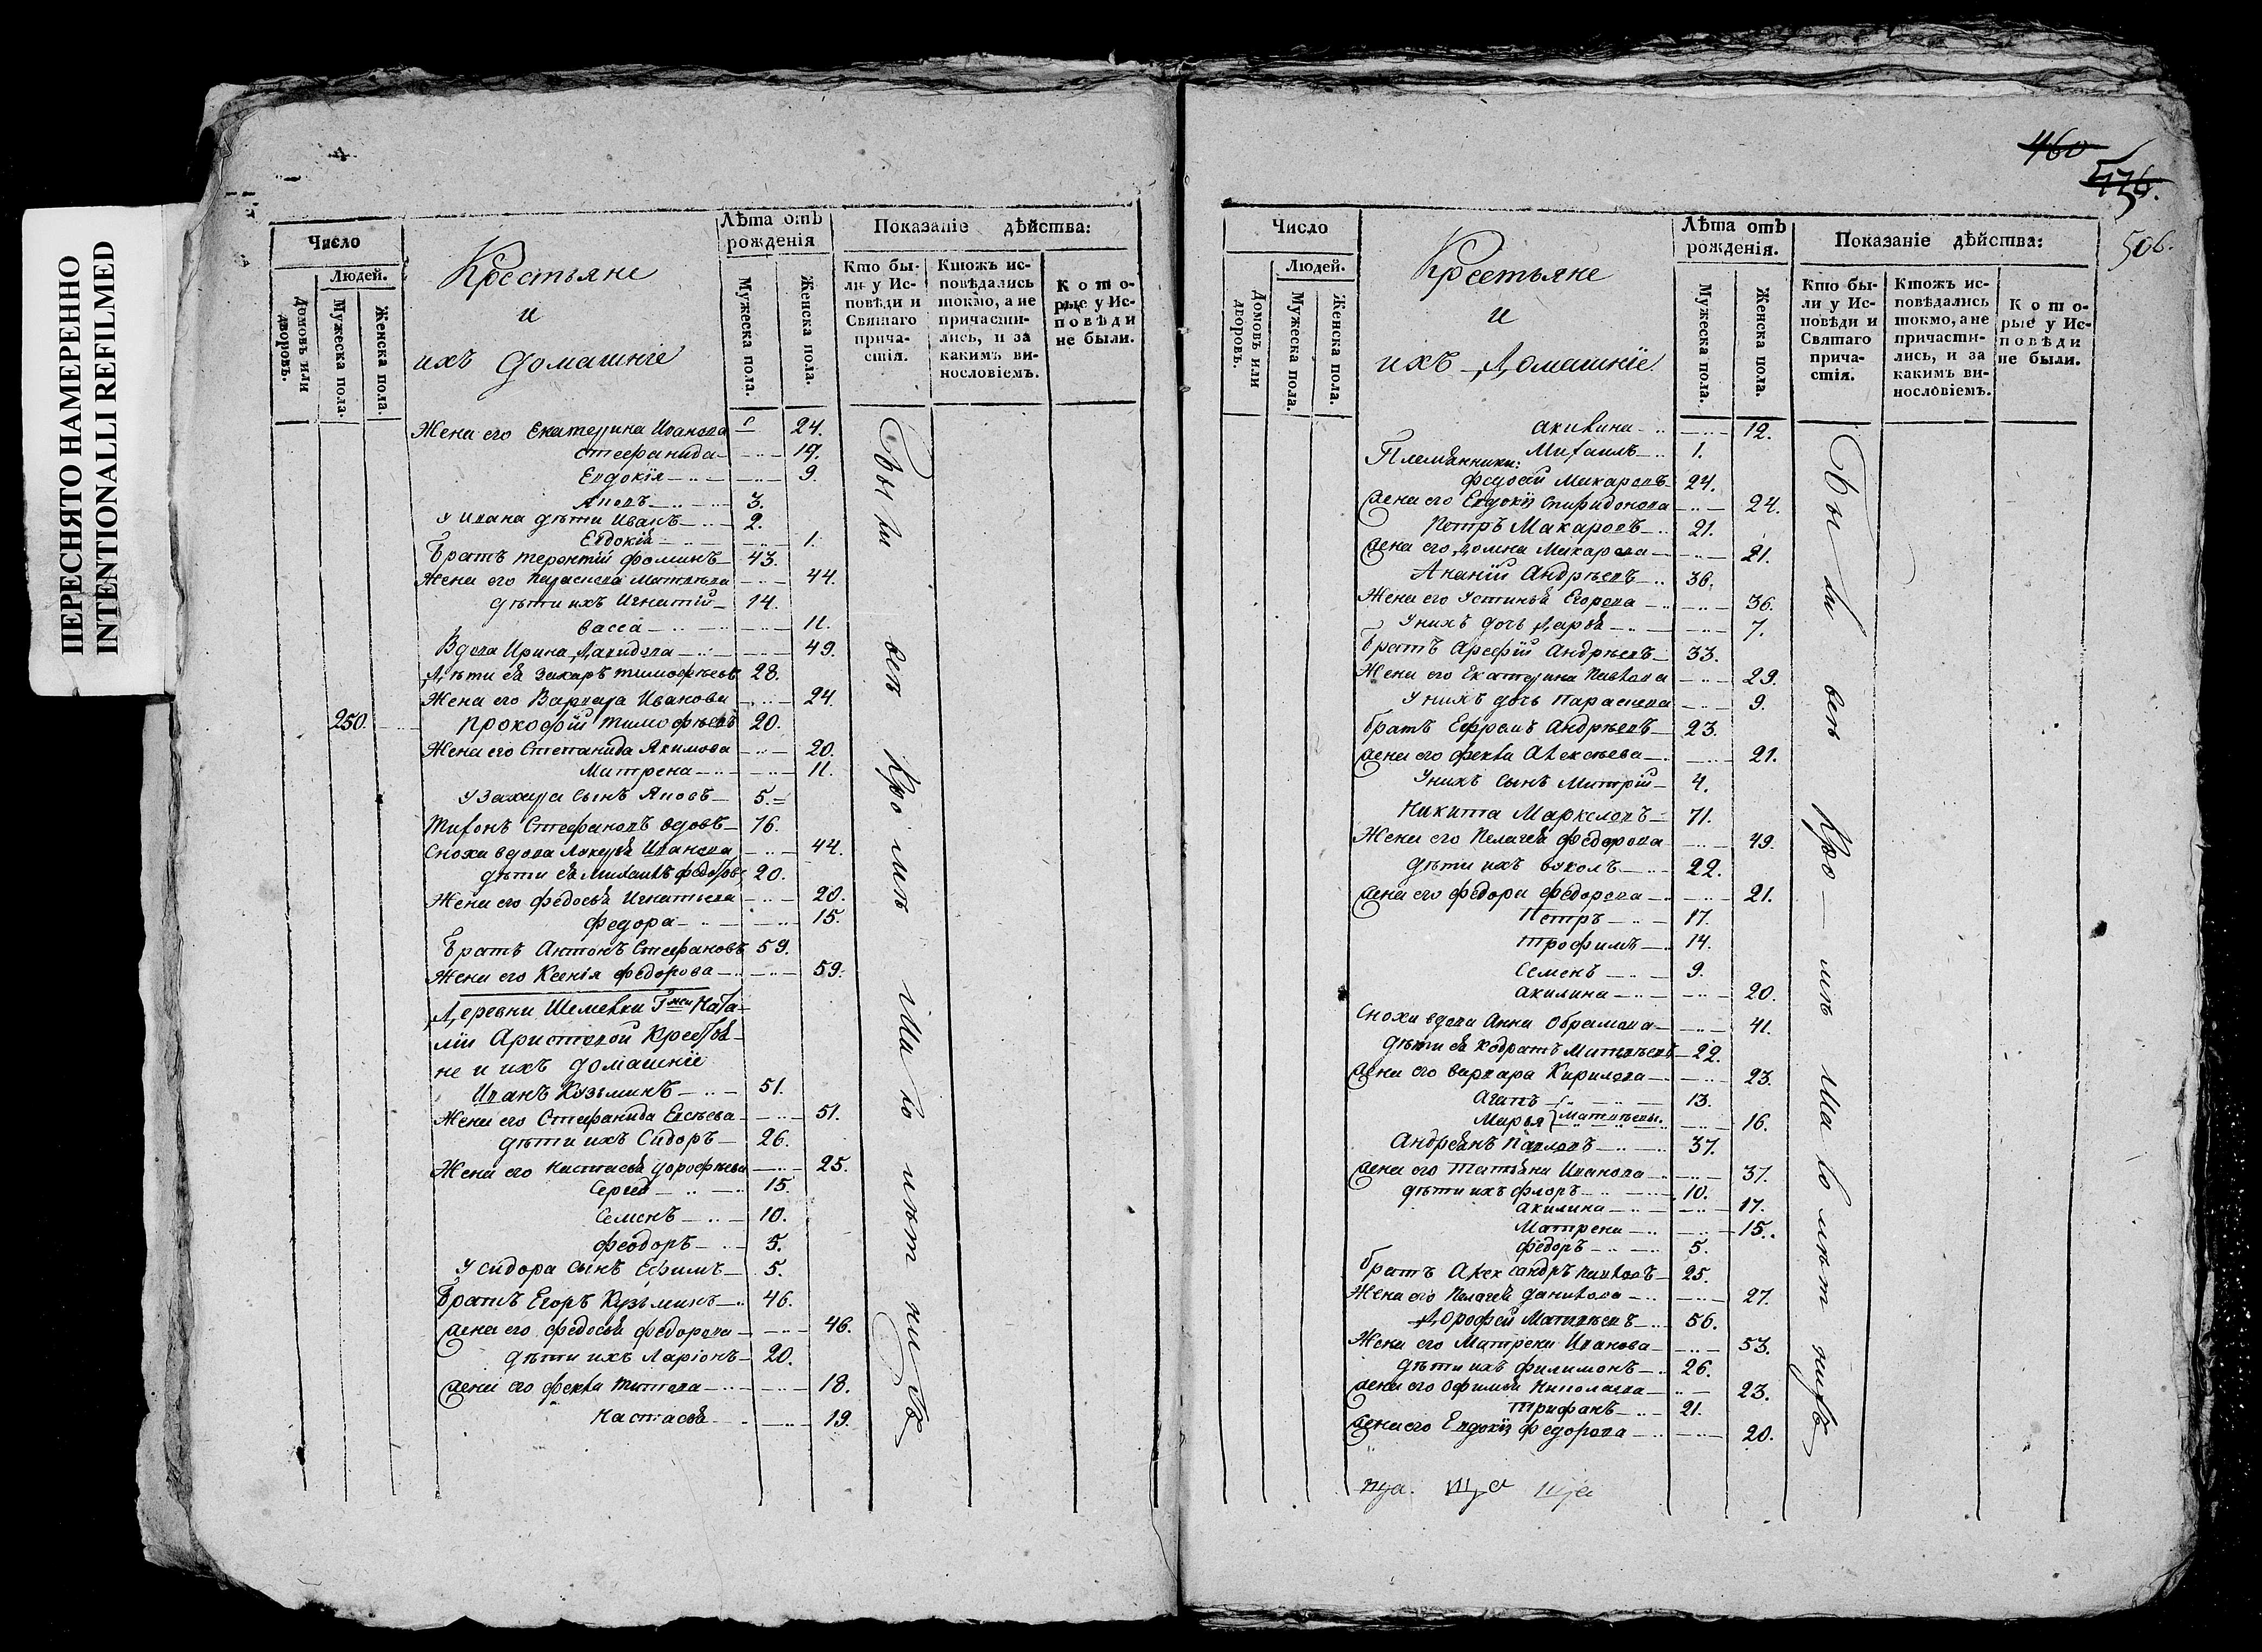 ПЕРЕСНЯТО НАМЕРЕННО
INTENTIONALLI REFILMED
Число
Людей.
Домовъ или дворовъ.
Мужеска пола.
Женска пола.
Крестьяне
и
ихъ домашніе
Лѣта отъ рожденія
Мужеска пола.
Женска пола.
Показаніе дѣйства:
Кто бы-
ли у Ис-
повѣди и
Святаго
прича-
стія.
Ктожъ ис-
повѣдались
токмо, а не
причасти-
лись, и за
какимъ ви-
нословіемъ.
Кото-
рые у Ис-
повѣди
не были.
Жена его Екатерина Иванова 24.
Стефанида 19.
Евдокія 9.
Яковъ 3.
У Ивана дѣти Иванъ 2.
Евдокія 1.
Братъ Терентій Фоминъ 43.
Жена его Параскева Матвѣева 44.
дѣти ихъ Игнатій 14.
Васса 11.
Вдова Ирина Давидова 49.
Дѣти ея Захаръ Тимофѣевъ 28.
Жена его Варвара Иванова 24.
250. Прокофій Тимофѣевъ 20.
Жена его Степанида Якимова 20.
Матрена 11.
У Захара сынъ Яковъ 5.
Тихонъ Стефановъ вдовъ 76.
Сноха вдова Лукерья Иванова 44.
дѣти ея Михаилъ Федотовъ 20.
Жена его Федосья Игнатьева 20.
Федора 15.
Братъ Антонъ Стефановъ 59.
Жена его Ксенія Федорова 59.
Деревни Шемевки Гжи Ната-
ліи Аристовой Крестья-
не и ихъ домашніе
Иванъ Кузьминъ 51.
Жена его Стефанида Евсѣева 51.
дѣти ихъ Сидоръ 26.
Жена его Настасья Дорофѣева 25.
Сергей 15.
Семенъ 10.
Феодоръ 5.
У Сидора сынъ Ефимъ 5.
Братъ Егоръ Кузьминъ 46.
Жена его Федосья Федорова 46.
дѣти ихъ Ларіонъ 20.
Жена его Фекла Титова 18.
Настасья 19.
Были всѣ
460
536.
506.
Число
Людей.
Домовъ или дворовъ.
Мужеска пола.
Женска пола.
Крестьяне
и
ихъ Домашніе
Лѣта отъ рожденія.
Мужеска пола.
Женска пола.
Показаніе дѣйства:
Кто бы-
ли у Ис-
повѣди и
Святаго
прича-
стія.
Ктожъ ис-
повѣдались
токмо, а не
причасти-
лись, и за
какимъ ви-
нословіемъ.
Кото-
рые у Ис-
повѣди
не были.
Акилина 12.
Михаилъ 1.
Племянники:
Макаровъ 24.
Жена его Евдокія Спиридонова 24.
Петръ Макаровъ 21.
Жена его Домна Макарова 21.
Ананій Андрѣевъ 36.
Жена его Устинья Егорова 36.
У нихъ дочь Дарья 7.
Братъ Арефій Андрѣевъ 33.
Жена его Екатерина Павлова 29.
У нихъ дочь Параскева 9.
Братъ Ефремъ Андрѣевъ 23.
Жена его Фекла Алексѣева 21.
У нихъ сынъ Митрій 4.
Никита Маркеловъ 71.
Жена его Пелагея Федорова 49.
дѣти ихъ Вуколъ 22.
Жена его Федора Федорова 21.
Петръ 17.
Трофимъ 14.
Семенъ 9.
Акилина 20.
Сноха вдова Анна Обрамова 41.
дѣти ея Кодратъ Матвѣевъ 22.
Жена его Варвара Кирилова 23.
Агапъ 13.
Марья Матвѣевы. 16.
Андреянъ Павловъ 37.
Жена его Татьяна Иванова 37.
дѣти ихъ Флоръ 10.
Акилина 17.
Матрена 15.
Федоръ 5.
Братъ Александръ Павловъ 25.
Жена его Пелагея Данилова 27.
Дорофей Матвѣевъ 56.
Жена его Матрена Иванова 53.
дѣти ихъ Филимонъ 26.
Жена его Офимья Николаева 23.
Трифанъ 21.
Жена его Евдокія Федорова 20.
Были всѣ